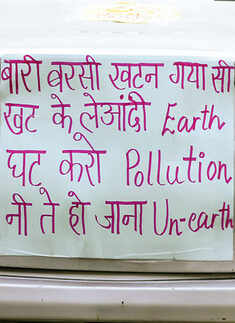 बारी बरसी खटन गया सी
खट के लेआंदी Earth
घट करो Pollution
नी ते हो जाना Un-earth